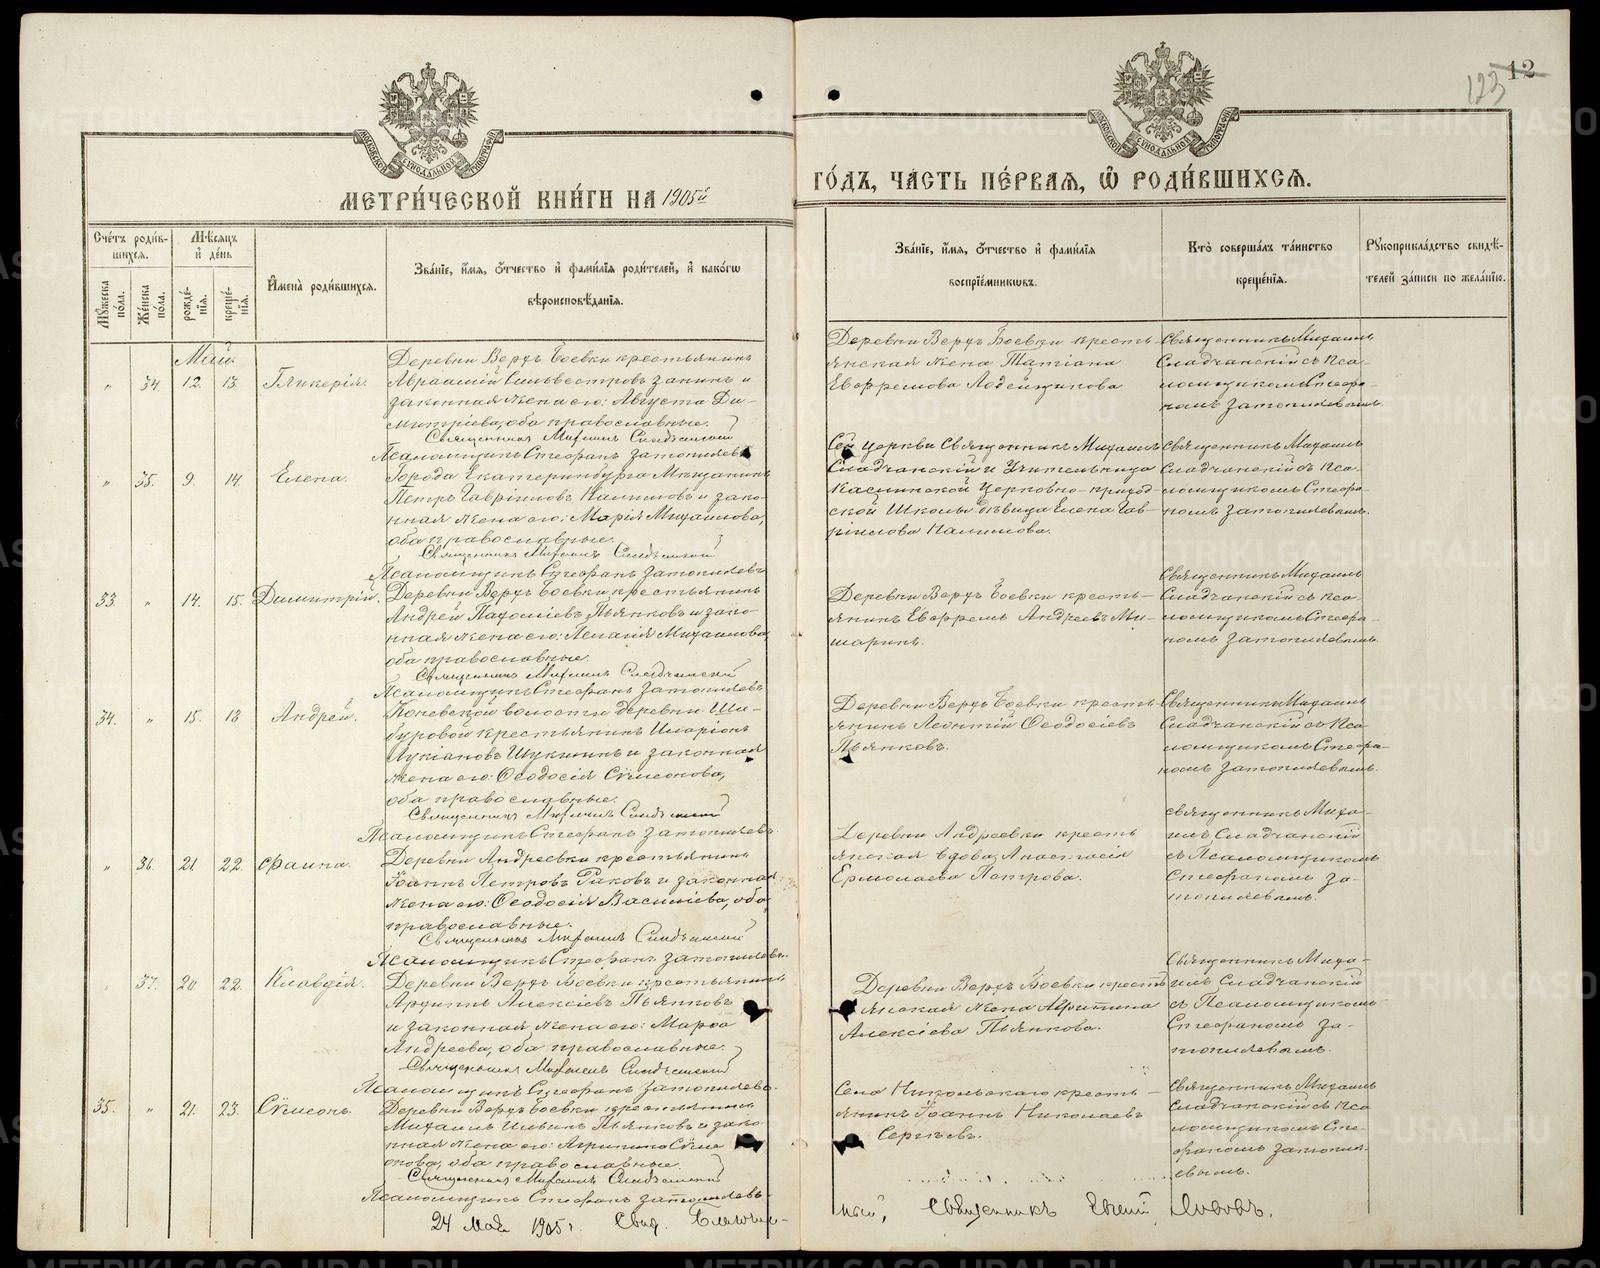 123
12
МЕТРИ́ЧЕСКОЙ КНИ́ГИ НА 1905й
ГО́ДЪ, ЧА́СТЬ ПЕ́РВАЯ, Ѡ РОДИ́ВШИХСЯ.
Сче́тъ роди́в-
шихся.
Мꙋжеска по́ла.
Же́нска по́ла.
Мѣ́сяцъ
и де́нь
рожде́-
нїя.
креще́-
нїя.
Имена̀ роди́вшихся.
Зва́нїе, и́мя, ѻ́тчество и фами́лїя роди́телей, и како́гѡ
вѣроисповѣ́данїя.
Зва́нїе, и́мя, ѻ́тчество и фами́лїя
воспрїе́мникѡвъ.
Кто̀ соверша́лъ та́инство
креще́нїя.
Рꙋкоприкла́дство свидѣ́-
телей за́писи по жела́нїю.
Май.
" 34 12. 13. Гликерія.
Деревни Верхъ Боевки крестьянинъ
Авраамій Сильвестровъ Запинъ и
законная жена его: Августа Ди-
митріева, оба православные.
Священникъ Михаилъ Сладчанскій
Псаломщикъ Стефанъ Затопляевъ
Деревни Верхъ Боевки кресть-
янская жена Татіана
Евфремова Лодейщикова
Священникъ Михаилъ
Сладчанскій съ Пса-
ломщикомъ Стефа-
номъ Затопляевымъ.
" 35. 9. 14. Елена.
Города Екатеринбурга Мѣщанинъ
Петръ Гавріиловъ Налимовъ и зако-
нная жена его: Марія Михаилова,
оба православные.
Священникъ Михаилъ Сладчанскій
Псаломщикъ Стефанъ Затопляевъ
Сей церкви Священникъ Михаилъ
Сладчанскій и Учительница
Каслинской Церковно-приход-
ской Школы дѣвица Елена Гав-
ріилова Налимова.
Священникъ Михаилъ
Сладчанскій съ Пса-
ломщикомъ Стефа-
номъ Затопляевымъ.
33. " 14. 15. Димитрій.
Деревни Верхъ Боевки крестьянинъ
Андрей Пьянковъ и зако-
нная жена его: Пелагія Михаилова
оба православные.
Священникъ Михаилъ Сладчанскій
Псаломщикъ Стефанъ Затопляевъ
Деревни Верхъ Боевки кресть-
янинъ Евфремъ Андреевъ Ми-
шаринъ.
Священникъ Михаилъ
Сладчанскій съ Пса-
ломщикомъ Стефа-
номъ Затопляевымъ.
34. " 15. 18 Андрей.
волости деревни Ша-
буровой крестьянинъ Иларіонъ
Лукіановъ Щукинъ и законная
жена его: Ѳеодосія Сѵмеонова,
оба православные.
Священникъ Михаилъ Сладчанскій
Псаломщикъ Стефанъ Затопляевъ
Деревни Верхъ Боевки кресть-
янинъ Леонтій Ѳеодосіевъ
Пьянковъ.
Священникъ Михаилъ
Сладчанскій съ Пса-
ломщикомъ Стефа-
номъ Затопляевымъ.
" 36. 21. 22. Фаина.
Деревни Андреевки крестьянинъ
Іоаннъ Петровъ Раковъ и законная
жена его: Ѳеодосія Василіева, оба
православные.
Священникъ Михаилъ Сладчанскій
Псаломщикъ Стефанъ Затопляевъ
Деревни Андреевки кресть-
янская вдова Анастасія
Ермолаева Петрова.
Священникъ Миха-
илъ Сладчанскій
съ Псаломщикомъ
Стефаномъ За-
топляевымъ.
" 37. 20 22. Клавдія.
Деревни Верхъ Боевки крестьянинъ
Архиппъ Алексіевъ Пьянковъ
и законная жена его: Марѳа
Андреева, оба православные.
Священникъ Михаилъ Сладчанскій
Псаломщикъ Стефанъ Затопляевъ.
Деревни Верхъ Боевки крестъ
янская жена
Алексіева Пьянкова.
Священникъ Миха-
илъ Сладчанскій
съ Псаломщикомъ
Стефаномъ За-
топляевымъ.
35. " 21. 23. Сѵмеонъ.
Деревни Верхъ Боевки крестьянинъ
Михаилъ Ильинъ Пьянковъ и зако-
нная жена его: Агрипина Сѵме
онова, оба православные.
Священникъ Михаилъ Сладчанскій
Псаломщикъ Стефанъ Затопляевъ.
Села Никольскаго кресть-
янинъ Іоаннъ Николаевъ
Сергѣевъ.
Священникъ Михаилъ
Сладчанскій съ Пса
ломщикомъ Сте-
фаномъ Затопля-
евымъ.
24 Мая 1905 г. Свид. Благочин-
ный, Священникъ Евгеній